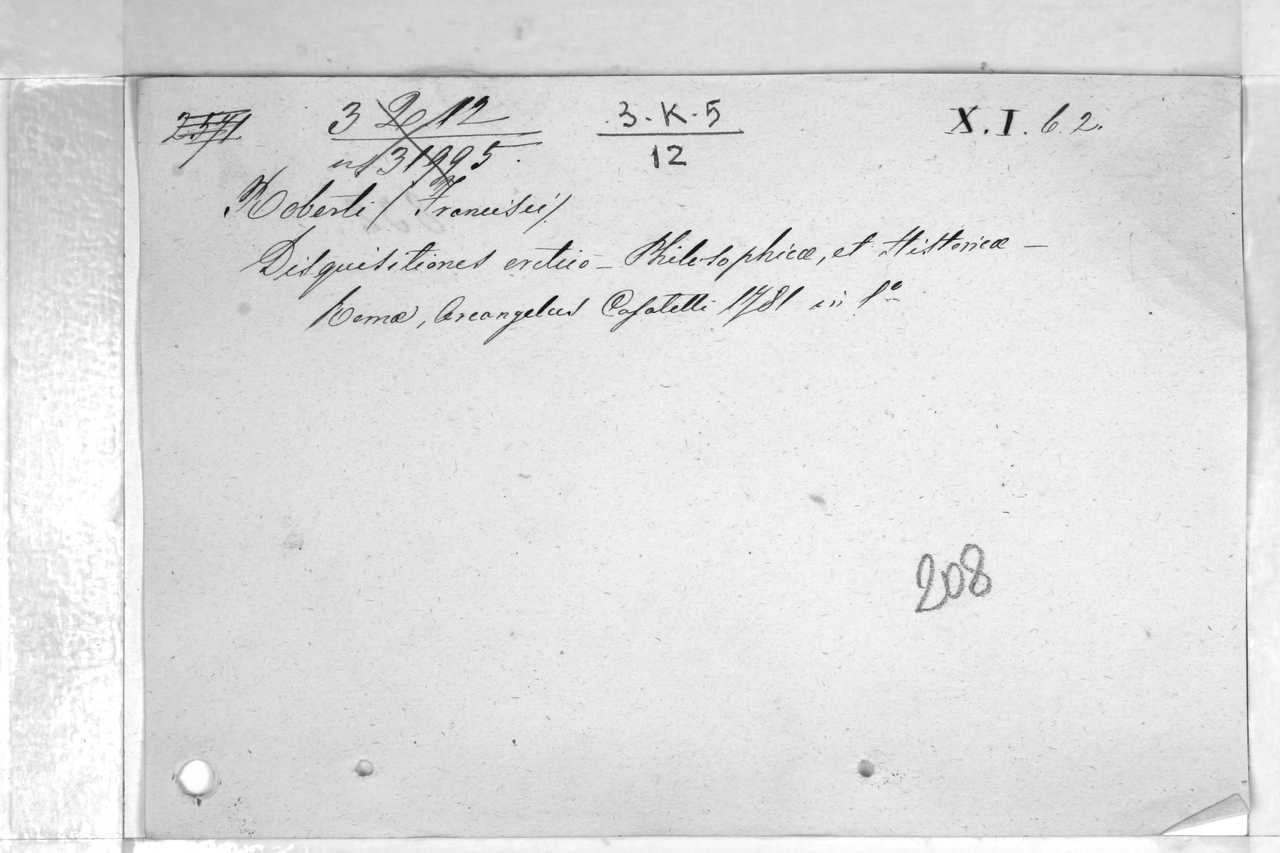 3 2 12
3.K.5
X.I.6.2.
12
n° 31995.
Roberti (Francisci)
Disquisitiones critico-Philosophicæ, et Historicæ —
Romæ, Arcangelus Casaletti 1781 in 8°
208